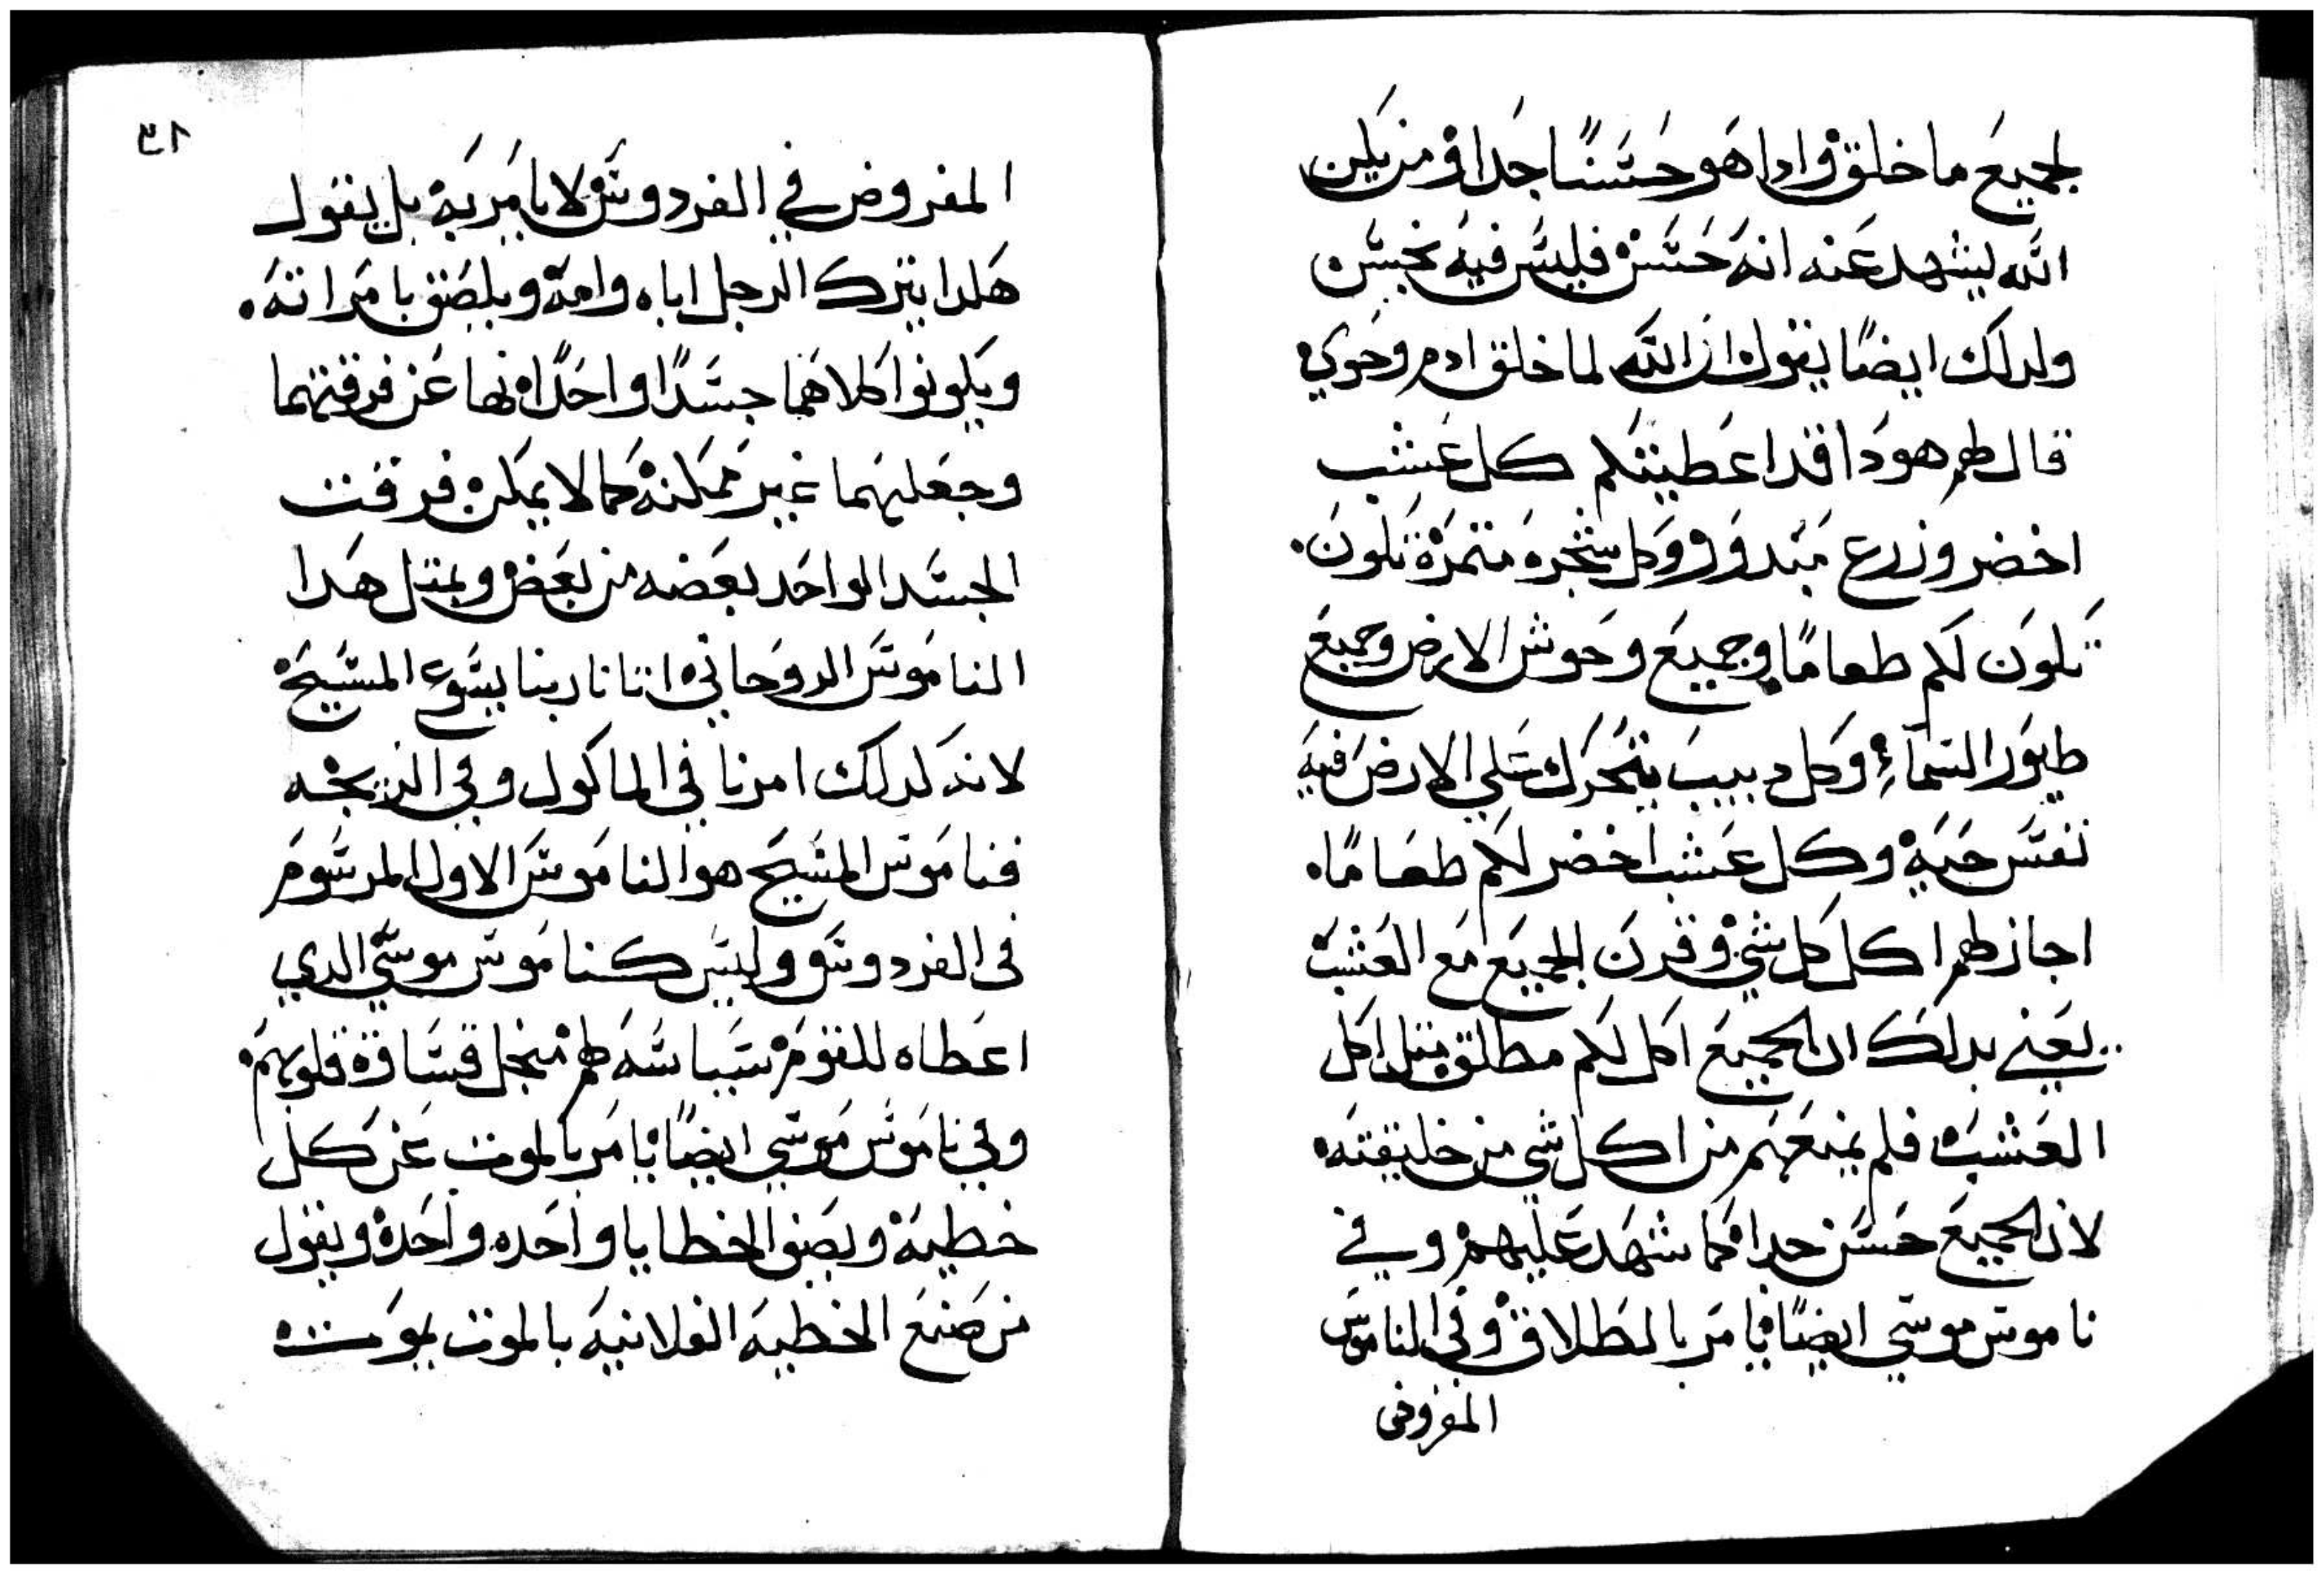 لجميع ما خلق وادا هو حسنًا جدا ومن يكن
الله ليشهد عنه انه حسن فليس فيه نجس
ولدلك ايضًا يقول ان الله لما خلق ادم وحوي
قال لهم هودا قد اعطيتكم كل عشب
اخضر وزرع مبدور وكل شجره متمرة تكون
تكون لكم طعامًا وجميع وحوش الارض وجميع
طيور السماء وكل دبيب يتحرك علي الارض فيه
نفس حيه وكل عشب اخضر لكم طعامًا
اجاز لهم اكل كل شي وقرن الجميع مع العشب
يعني بدلك ان الجميع اكل لكم مطلق متل اكل
العشب فلم يمنعهم من اكل شي من خليقته
لان الجميع حسن جدا كما شهد عليهم وفي
ناموس موسي ايضًا يامر بالطلاق وفي الناموس
المفروض
٣١
المفروض في الفردوس لا يامر به بل يقول
هكدا يترك الرجل اباه وامه ويلصق بامراته
ويكونوا كلاهما جسدًا واحدًا نها عن فرقتهما
وجعلهما غير ممكنه كما لا يمكن فرقت
الجسد الواحد بعضه من بعض وبمتل هدا
الناموس الروحاني اتانا ربنا يسوع المسيح
لانه كدلك امرنا في الماكول وفي الزيجه
فناموس المسيح هو الناموس الاول المرسوم
في الفردوس وليس كناموس موسي الدي
اعطاه للقوم سياسه لهم منجل قساوة قلوبهم
وفي ناموس موسي ايضًا يامر بالموت عن كل
خطية ويصنف الخطايا واحده واحدة ويقول
من صنع الخطيه الفلانيه بالموت يموت